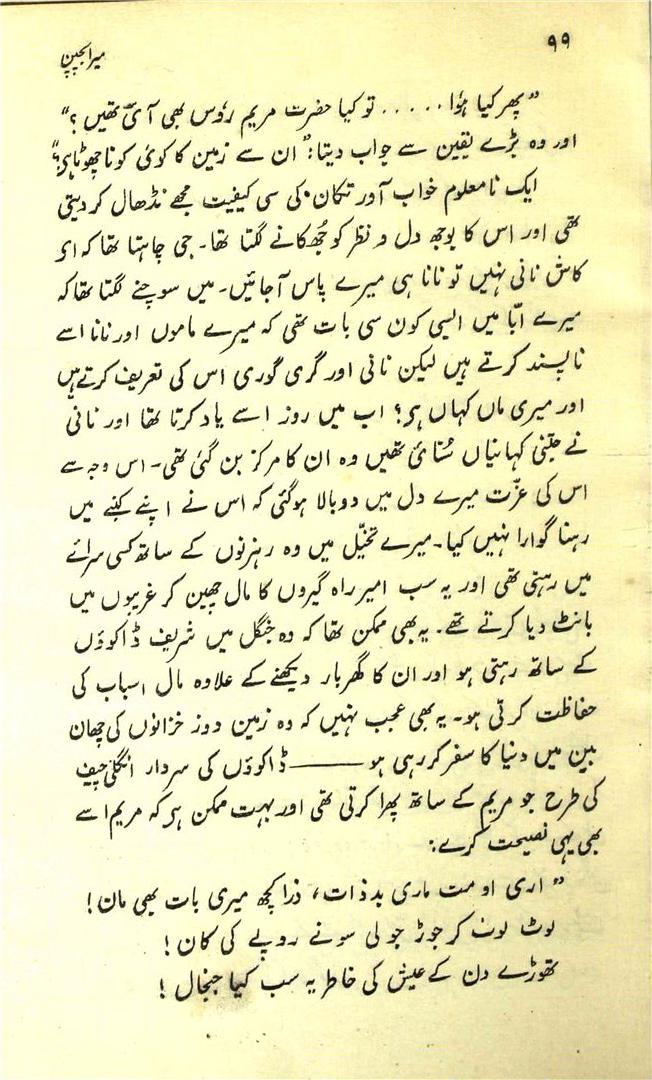 ۹۹
میرا بچپن
"پھر کیا ہؤا ..... تو کیا حضرت مریم رؤس بھی آئی تھیں؟"
اور وہ بڑے یقین سے جواب دیتا: "ان سے زمین کا کوئی کونا چھوٹا ہی؟"
ایک نامعلوم خواب آور تکان کی سی کیفیت مجھے نڈھال کر دیتی
تھی اور اس کا بوجھ دل و نظر کو جھکانے لگتا تھا۔ جی چاہتا تھا کہ اے
کاش نانی نہیں تو نانا ہی میرے پاس آجائیں۔ میں سوچنے لگتا تھا کہ
میرے ابّا میں ایسی کون سی بات تھی کہ میرے ماموں اور نانا اسے
ناپسند کرتے ہیں لیکن نانی اور گری گوری اس کی تعریف کرتے ہیں
اور میری ماں کہاں ہی؟ اب میں روز اسے یاد کرتا تھا اور نانی
نے جتنی کہانیاں سُنائی تھیں وہ ان کا مرکز بن گئی تھی۔ اس وجہ سے
اس کی عزّت میرے دل میں دوبالا ہوگئی کہ اس نے اپنے کنبے میں
رہنا گوارا نہیں کیا۔ میرے تخیّل میں وہ رہزنوں کے ساتھ کسی سرائے
میں رہتی تھی اور یہ سب امیر راہ گیروں کا مال چھین کر غریبوں میں
بانٹ دیا کرتے تھے۔ یہ بھی ممکن تھا کہ وہ جنگل میں شریف ڈاکوؤں
کے ساتھ رہتی ہو اور ان کا گھر بار دیکھنے کے علاوہ مال اسباب کی
حفاظت کرتی ہو۔ یہ بھی عجب نہیں کہ وہ زمین دوز خزانوں کی چھان
بین میں دنیا کا سفر کر رہی ہو —— ڈاکوؤں کی سردار انگلی چیف
کی طرح جو مریم کے ساتھ پھرا کرتی تھی اور بہت ممکن ہی کہ مریم اسے
بھی یہی نصیحت کرے:
"اری او مت ماری بدذات، ذرا کچھ میری بات بھی مان!
لوٹ لوٹ کر جوڑ جو لی سونے روپے کی کان!
تھوڑے دن کے عیش کی خاطر یہ سب کیا جنجال!